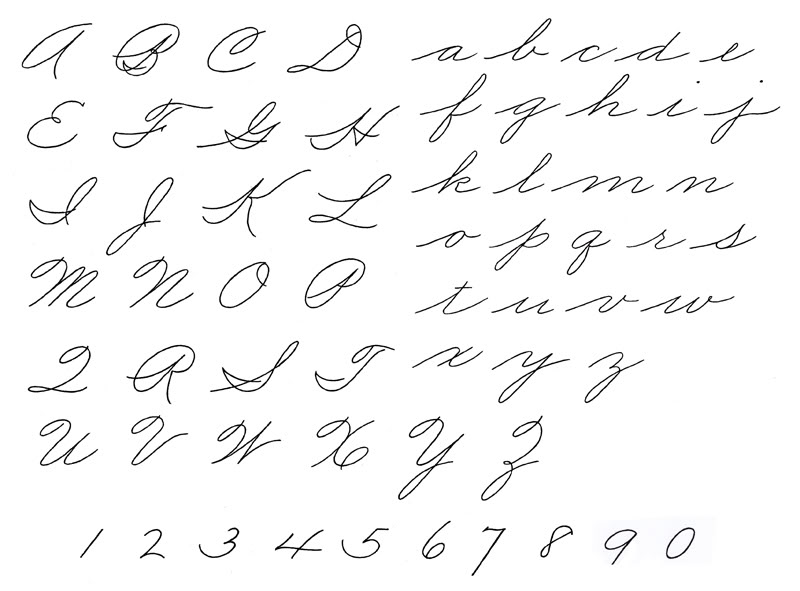 A B C D
E F G H
I J K L
M N O P
Q R S T
U V W X Y Z
a b c d e
f g h i j
k l m n
o p q r s
t u v w
x y z
1 2 3 4 5 6 7 8 9 0